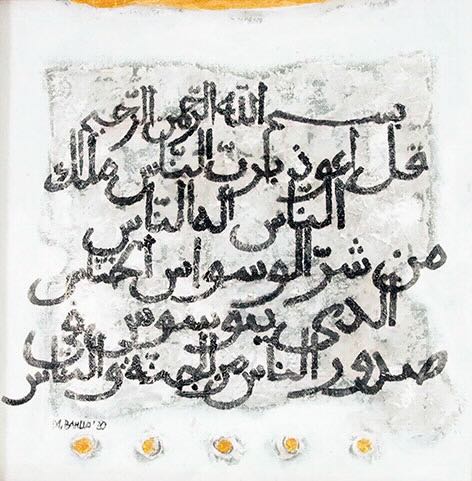 بسم الله الرّحمن الرّحيم
قل اعوذ بربّ النّاس ملك
النّاس اله النّاس
من شرّ الوسواس الخنّاس
الذي يوسوس في
صدور الناس من الجنّة والنّاس
M. BAHLLO '20